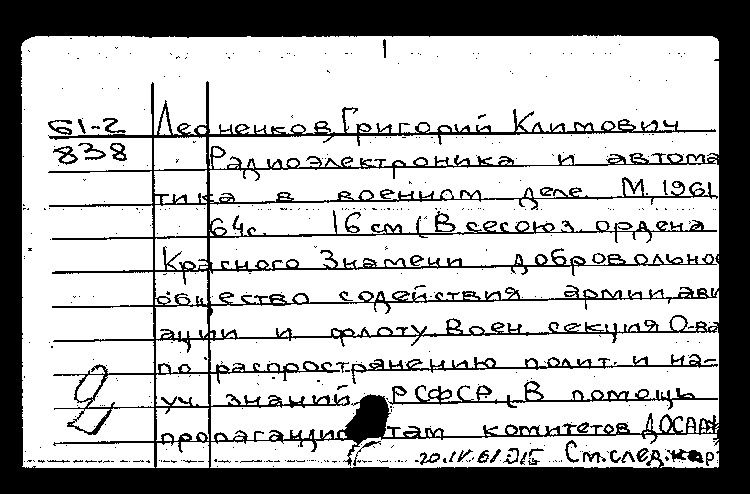 61-2 Леоненков, Григорий Климович
838 Радиоэлектроника и автома
тика в военном деле. М, 1961
64с. 16 см (Всесоюз. ордена
Красного Знамени добровольно
общество содействия армии, ави
ации и флоту. Воен. секция О-ва
по распространению полит. и на-
уч. знаний РСФСР. В помощь
пропагандистам комитетов ДОСААФ
20.IV.61 См. след. кар
2